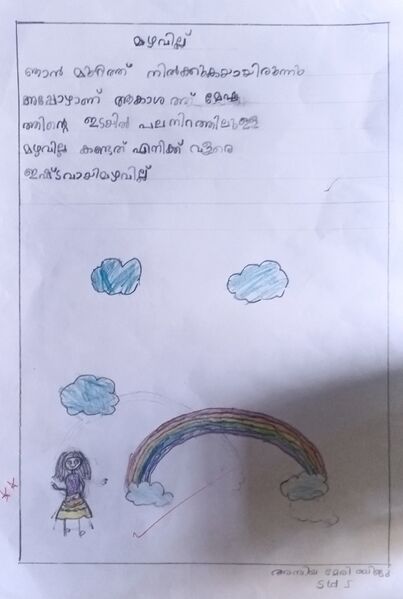 മഴവില്ല്
ഞാൻ മുറ്റത്ത് നിൽക്കുകയായിരുന്നു
അപ്പോഴാണ് ആകാശത്ത് മേഘ
ത്തിന്റെ ഇടയിൽ പലനിറത്തിലുള്ള
മഴവില്ല കണ്ടത് എനിക്ക് വളരെ
ഇഷ്ടവായിമഴവില്ല്
മേരി
Std 5